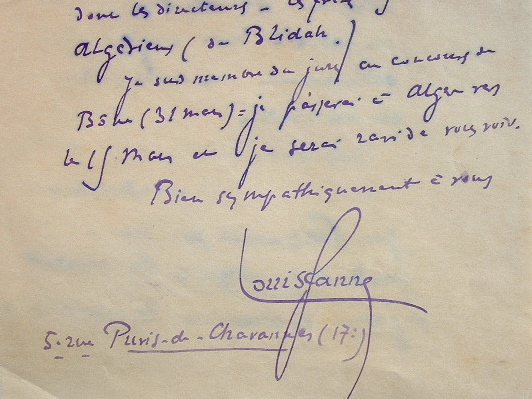 dont les directeurs
Algériens (de Blidah.)
je suis membre du jury au concours de
Bône (31 mars) = je passerai à Alger vers
le 15 mars et je serai ravi de vous voir.
Bien sympathiquement à vous
Louis Ganne
5. rue Puvis-de-Chavannes (17:)